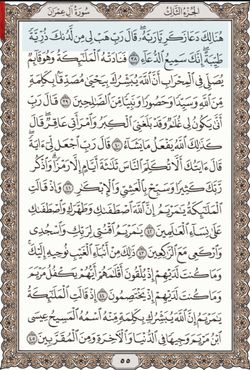 سُورَةُ آلِ عِمْرَانَ الجُزْءُ الثَّالِثُ
هُنَالِكَ دَعَا زَكَرِيَّا رَبَّهُۥ قَالَ رَبِّ هَبْ لِى مِن لَّدُنكَ ذُرِّيَّةً
طَيِّبَةً إِنَّكَ سَمِيعُ ٱلدُّعَآءِ ٣٨ فَنَادَتْهُ ٱلْمَلَٰٓئِكَةُ وَهُوَ قَآئِمٌ
يُصَلِّى فِى ٱلْمِحْرَابِ أَنَّ ٱللَّهَ يُبَشِّرُكَ بِيَحْيَىٰ مُصَدِّقًۢا بِكَلِمَةٍ
مِّنَ ٱللَّهِ وَسَيِّدًا وَحَصُورًا وَنَبِيًّا مِّنَ ٱلصَّٰلِحِينَ ٣٩ قَالَ رَبِّ
أَنَّىٰ يَكُونُ لِى غُلَٰمٌ وَقَدْ بَلَغَنِىَ ٱلْكِبَرُ وَٱمْرَأَتِى عَاقِرٌ قَالَ
كَذَٰلِكَ ٱللَّهُ يَفْعَلُ مَا يَشَآءُ ٤٠ قَالَ رَبِّ ٱجْعَل لِّىٓ ءَايَةً
قَالَ ءَايَتُكَ أَلَّا تُكَلِّمَ ٱلنَّاسَ ثَلَٰثَةَ أَيَّامٍ إِلَّا رَمْزًا وَٱذْكُر
رَّبَّكَ كَثِيرًا وَسَبِّحْ بِٱلْعَشِىِّ وَٱلْإِبْكَٰرِ ٤١ وَإِذْ قَالَتِ
ٱلْمَلَٰٓئِكَةُ يَٰمَرْيَمُ إِنَّ ٱللَّهَ ٱصْطَفَىٰكِ وَطَهَّرَكِ وَٱصْطَفَىٰكِ
عَلَىٰ نِسَآءِ ٱلْعَٰلَمِينَ ٤٢ يَٰمَرْيَمُ ٱقْنُتِى لِرَبِّكِ وَٱسْجُدِى
وَٱرْكَعِى مَعَ ٱلرَّٰكِعِينَ ٤٣ ذَٰلِكَ مِنْ أَنۢبَآءِ ٱلْغَيْبِ نُوحِيهِ إِلَيْكَ
وَمَا كُنتَ لَدَيْهِمْ إِذْ يُلْقُونَ أَقْلَٰمَهُمْ أَيُّهُمْ يَكْفُلُ مَرْيَمَ
وَمَا كُنتَ لَدَيْهِمْ إِذْ يَخْتَصِمُونَ ٤٤ إِذْ قَالَتِ ٱلْمَلَٰٓئِكَةُ
يَٰمَرْيَمُ إِنَّ ٱللَّهَ يُبَشِّرُكِ بِكَلِمَةٍ مِّنْهُ ٱسْمُهُ ٱلْمَسِيحُ عِيسَى
ٱبْنُ مَرْيَمَ وَجِيهًا فِى ٱلدُّنْيَا وَٱلْءَاخِرَةِ وَمِنَ ٱلْمُقَرَّبِينَ ٤٥
٥٥